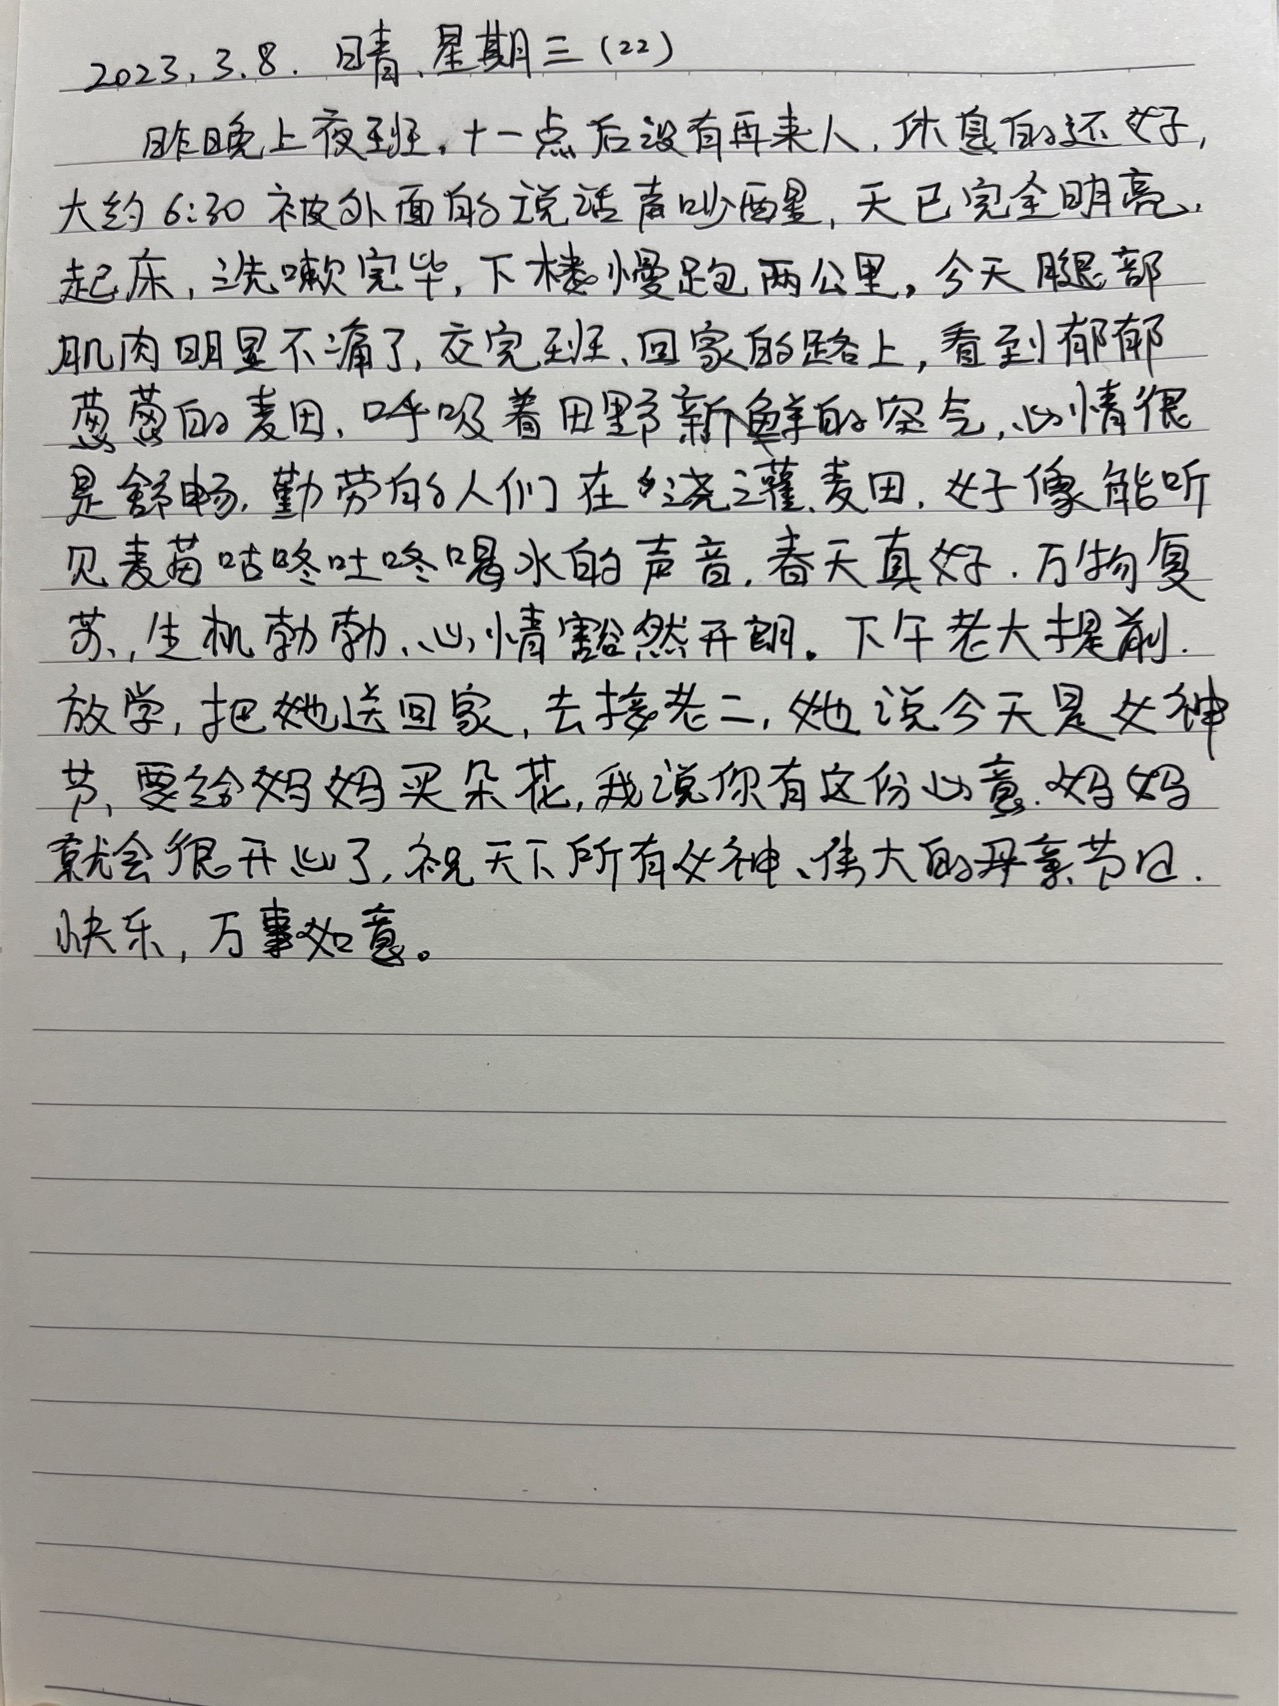 2023.3.8. 晴、星期三(22)
昨晚上夜班,十一点后没有再来人,休息的还好,
大约6:30被外面的说话声吵醒,天已完全明亮,
起床,洗嗽完毕,下楼慢跑两公里,今天腿部
肌肉明显不痛了,交完班、回家的路上,看到郁郁
葱葱的麦田、呼吸着田野新鲜的空气,心情很
是舒畅,勤劳的人们在浇灌麦田,好像能听
见麦苗咕咚吐咚喝水的声音,春天真好.万物复
苏,生机勃勃、心情豁然开朗。下午老大提前.
放学,把她送回家,去接老二,她说今天是女神
节、要给妈妈买朵花,我说你有这份心意.妈妈
就会很开心了,祝天下所有女神、伟大的母亲节日.
快乐,万事如意。